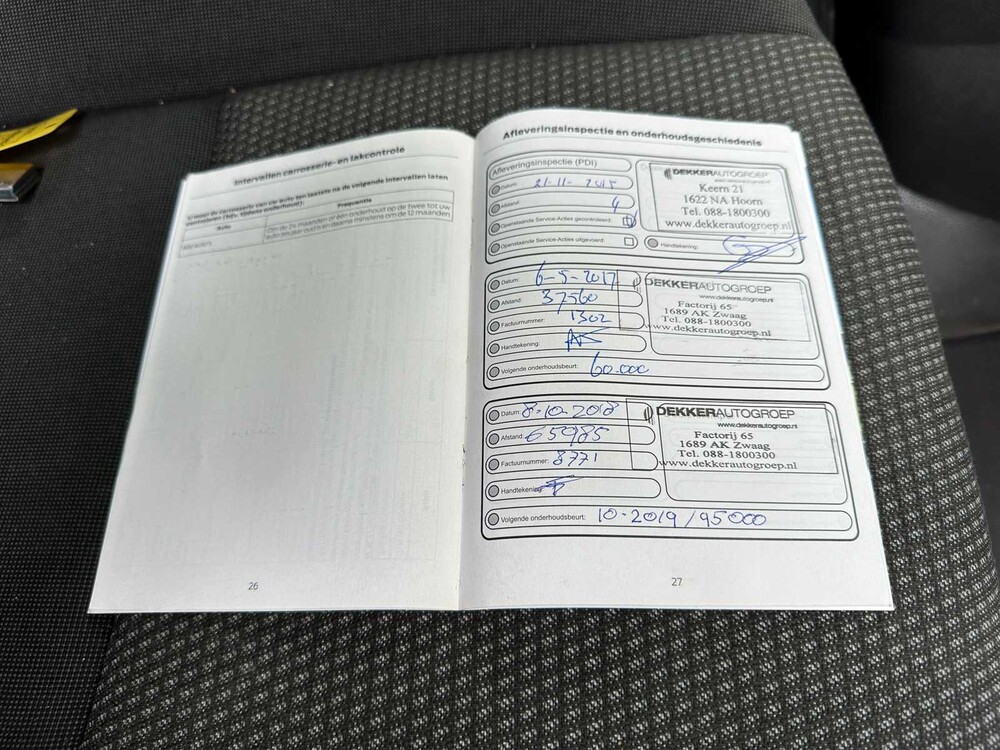 Intervallen carrosserie- en lakcontrole
U moet de carrosserie van uw auto ten laatste na de volgende intervallen laten
controleren (bijv. tijdens onderhoud):
Auto
Frequentie
Alle auto's
Om de 24 maanden of één onderhoud op de twee tot uw
auto zes jaar oud is en daarna minstens om de 12 maanden
26
Afleveringsinspectie en onderhoudsgeschiedenis
Afleveringsinspectie (PDI)
Datum: 21-11-2015
Afstand: 4
Openstaande Service-Acties gecontroleerd:
Openstaande Service-Acties uitgevoerd:
DEKKERAUTOGROEP
Keern 21
1622 NA Hoorn
Tel. 088-1800300
www.dekkerautogroep.nl
Handtekening:
Datum: 6-5-2017
Afstand: 37560
Factuurnummer: 1302
Handtekening:
Volgende onderhoudsbeurt: 60.000
DEKKERAUTOGROEP
www.dekkerautogroep.nl
Factorij 65
1689 AK Zwaag
Tel. 088-1800300
www.dekkerautogroep.nl
Datum: 8-10-2018
Afstand: 65985
Factuurnummer: 8771
Handtekening:
Volgende onderhoudsbeurt: 10-2019/95000
DEKKERAUTOGROEP
www.dekkerautogroep.nl
Factorij 65
1689 AK Zwaag
Tel. 088-1800300
www.dekkerautogroep.nl
27